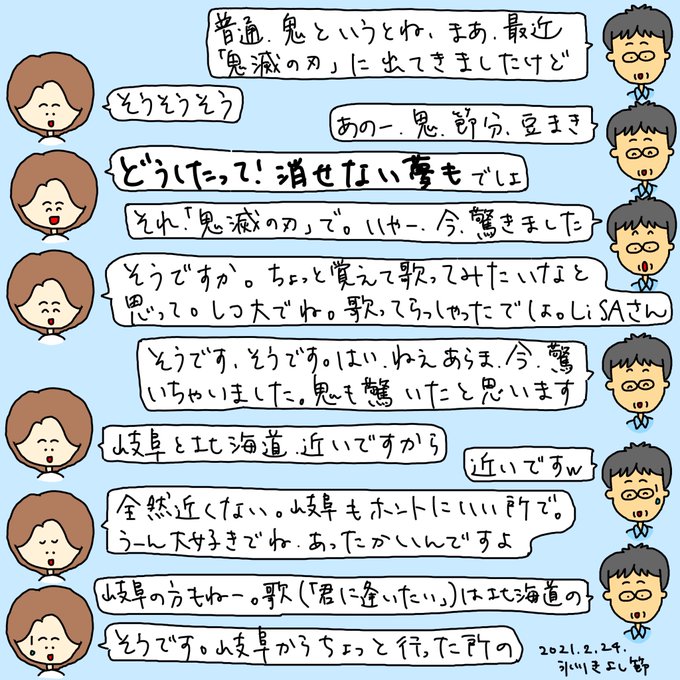 普通、鬼というとね、まあ、最近
「鬼滅の刃」に出てきましたけど
そうそうそう
あのー、鬼、節分、豆まき
どうしたって!消せない夢もでしょ
それ、「鬼滅の刃」で。いやー、今、驚きました
そうですか。ちょっと覚えて歌ってみたいなと
思って。レコ大でね。歌ってらっしゃったでしょ。LiSAさん
そうです、そうです。はい、ねえあらま、今、驚
いちゃいました。鬼も驚いたと思います
岐阜と北海道、近いですから
近いですw
全然近くない。岐阜もホントにいい所で。
うーん大好きでね、あったかいんですよ
岐阜の方もねー。歌(「君に逢いたい」)は北海道の
そうです。岐阜からちょっと行った所の
2021.2.24.
氷川きよし節